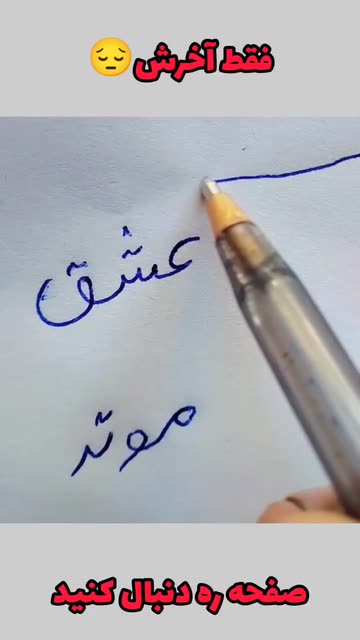 فقط آخرش😔
عشق
موتر
صفحه ره دنبال کنید